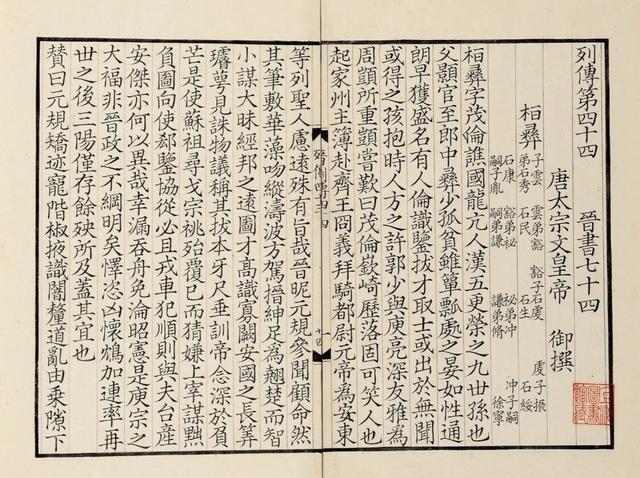 列傳第四十四 晉書七十四
唐太宗文皇帝 御撰
桓彝 子雲 雲弟豁 豁子石虔 虔子振
弟石秀 石民 石生 石綏
石康 豁弟祕 祕弟沖 沖子嗣
嗣子胤 嗣弟謙 謙弟脩 徐寧
桓彝字茂倫譙國龍亢人漢五更榮之九世孫也
父顥官至郎中彝少孤貧雖簞瓢處之晏如性通
朗早獲盛名有人倫識鑒拔才取士或出於無聞
或得之孩抱時人方之許郭少與庾亮深友雅為
周顗所重顗嘗歎曰茂倫嶔崎歷落固可笑人也
起家州主簿赴齊王冏義拜騎都尉元帝為安東
十四
等列聖人慮遠殊有旨哉晉昵元規參聞顧命然
其筆敷華藻吻縱濤波方駕搢紳足為翹楚而智
小謀大昧經邦之遠圖才高識寡闕安國之長筭
璿萼見誅物議稱其拔本牙尺垂訓帝念深於負
芒是使蘇祖尋戈宗祧殆覆已而猜嫌上宰謀黜
負圖向使郗鑒協從必且戎車犯順則與夫台產
安傑亦何以異哉幸漏吞舟免淪昭憲是庾宗之
大福非晉政之不綱明矣懌恣凶懷鴆加連率再
世之後三陽僅存餘殃所及蓋其宜也
贊曰元規矯迹寵階椒掖識闇釐道亂由乘隙下